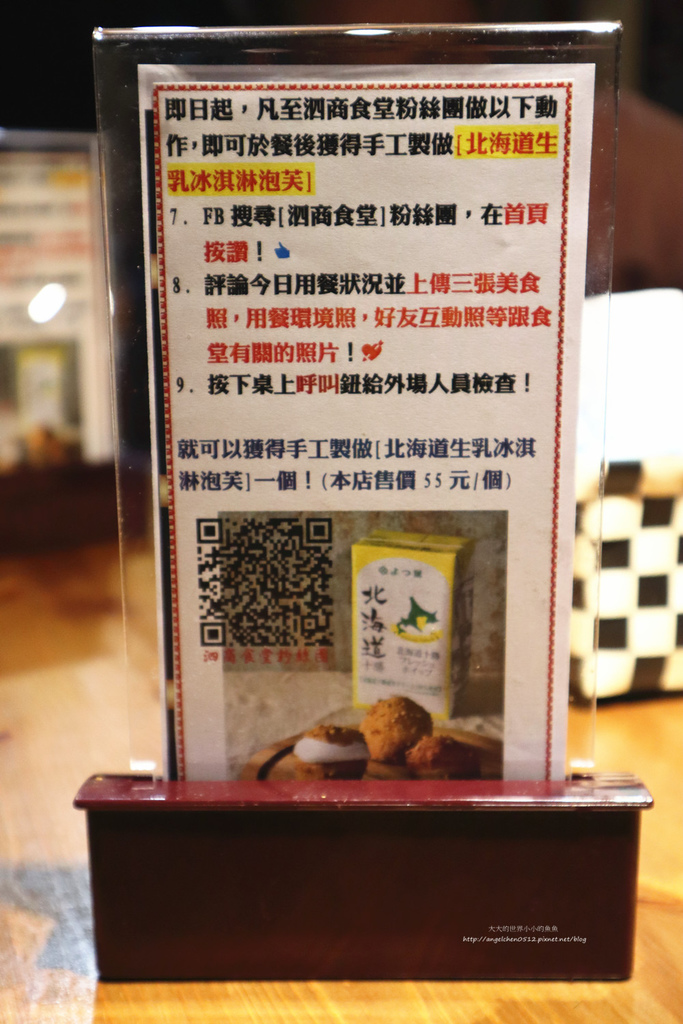 即日起，凡至泗商食堂粉絲團做以下動
作，即可於餐後獲得手工製做[北海道生
乳冰淇淋泡芙]
7. FB 搜尋[泗商食堂]粉絲團，在首頁
按讚！
8. 評論今日用餐狀況並上傳三張美食
照，用餐環境照，好友互動照等跟食
堂有關的照片！
9. 按下桌上呼叫鈕給外場人員檢查！
就可以獲得手工製做[北海道生乳冰淇
淋泡芙]一個！(本店售價 55 元/個)
泗商食堂粉絲團
よつ葉
北海道
十勝
北海道十勝
フレッシュ
ホイップ
大大的世界小小的魚魚
http://angelchen0512.pixnet.net/blog